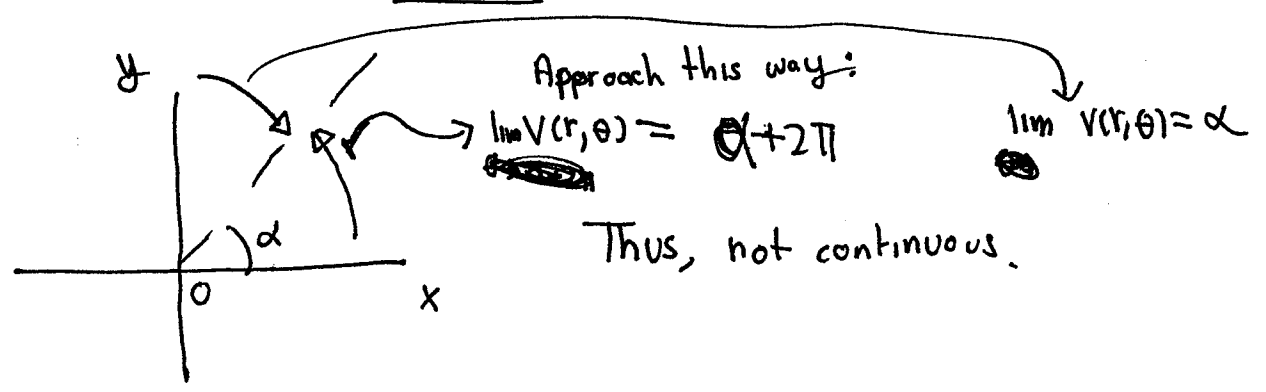 y
Approach this way:
lim V(r, θ) = α+2π
lim V(r, θ) = α
α
Thus, not continuous.
0
x